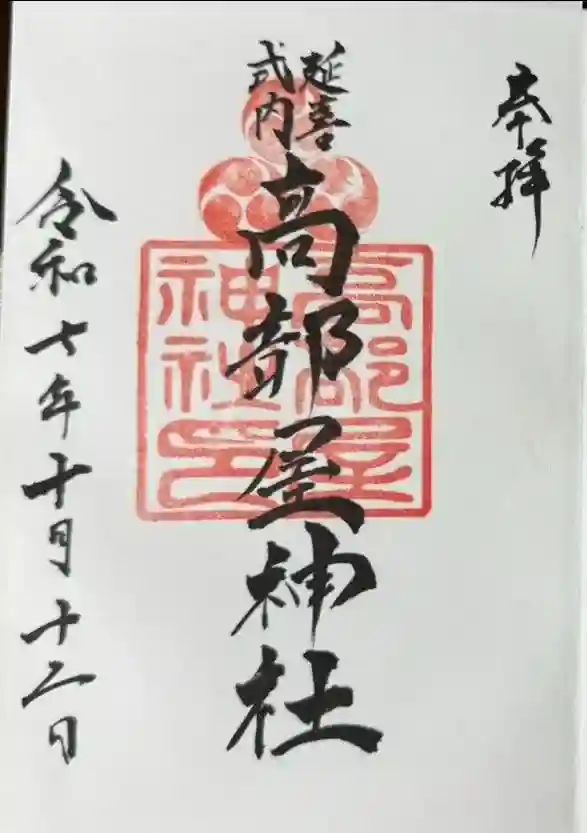 奉拝
延喜
式内
高部屋神社
高部屋
神社印
令和七年十月十二日